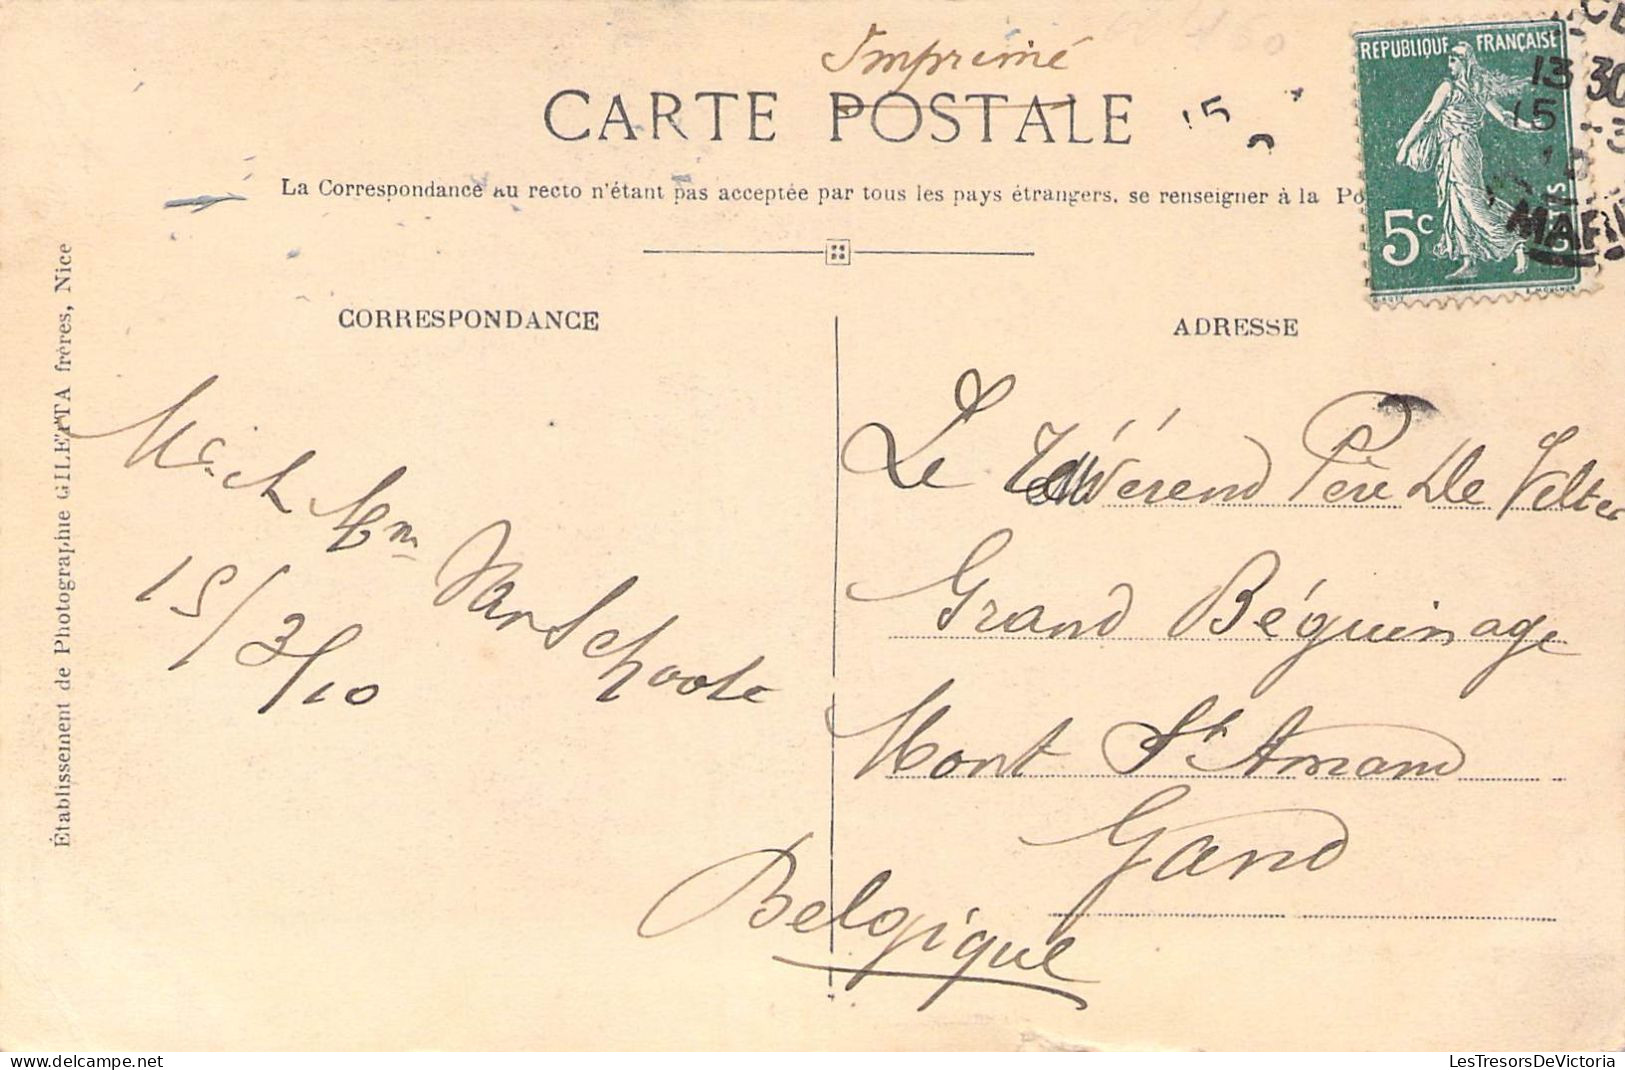 Imprimé
CARTE POSTALE
La Correspondance au recto n'étant pas acceptée par tous les pays étrangers, se renseigner à la Po
REPUBLIQUE FRANÇAISE
5c
13 30
15
CORRESPONDANCE
ADRESSE
Établissement de Photographie GILETTA frères, Nice
Van Schoote
15/3/10
Le Révérend Père De Velter
Grand Béguinage
Mont St Amand
Gand
Belgique
LesTresorsDeVictoria